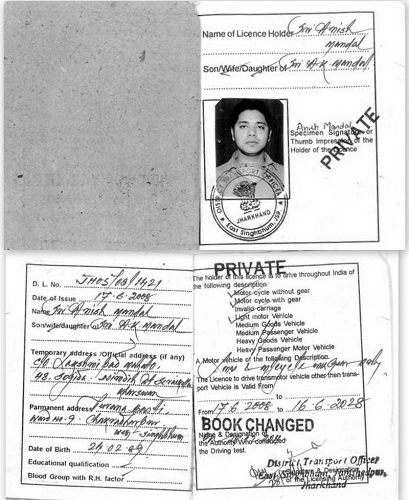 Name of Licence Holder Sri Anish
Mandal
Son/Wife/Daughter of Sri A.K Mandal
Anish Mandal
Specimen Signature or
Thumb Impression of the
Holder of the Licence
PRIVATE
JHARKHAND
East Singhbhum, JSP
D. L. No. JH05/08/1421
Date of Issue 17-6-2008
Name Sri Anish Mandal
Son/wife/daughter of Sri A.K Mandal
Temporary address /Official address (if any)
Permanent address
Ward No-9.
Date of Birth
Educational qualification
Blood Group with R.H. factor
PRIVATE
The holder of this licence is to drive throughout India of
the following description
Motor cycle without gear
Motor cycle with gear
Invalid carriage
Light motor Vehicle
Medium Goods Vehicle
Medium Passenger Vehicle
Heavy Goods Vehicle
Heavy Passenger Motor Vehicle
A Motor vehicle of the following Description
The Licence to drive transport vehicle other then trans-
port Vehicle is Valid From
to
From 17.6.2008 to 16.6.2028
BOOK CHANGED
Name & Designation of
the Authority Who conducted
the Driving test.
District Transport Officer
East Singhbhum, Jamshedpur,
Jharkhand